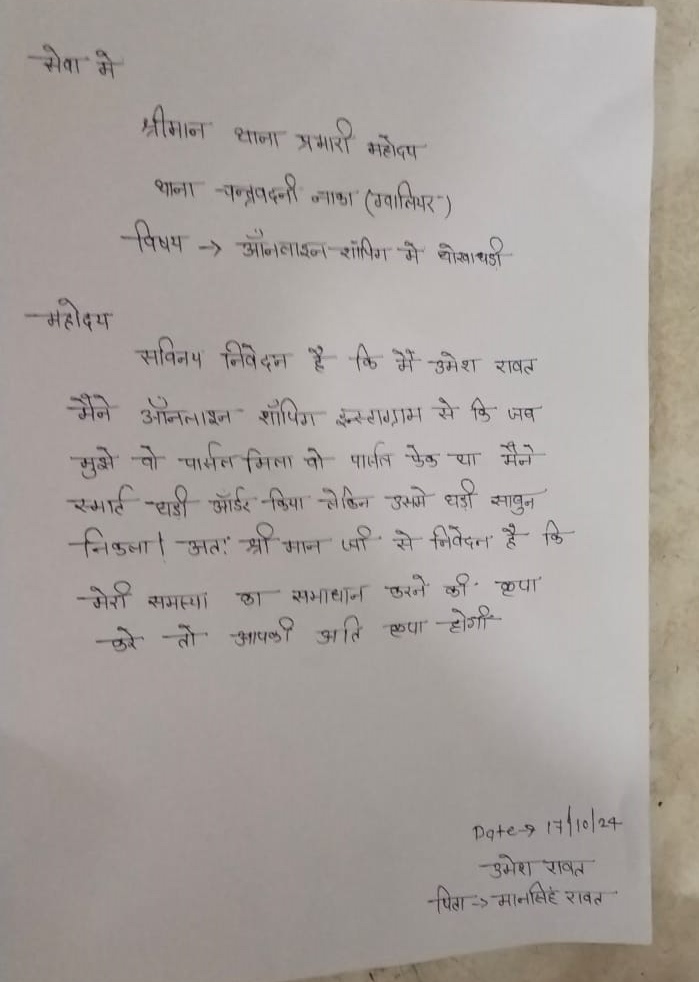 सेवा मे
श्रीमान थाना प्रभारी महोदय
थाना चन्द्रवदनी नाका (ग्वालियर)
विषय → ऑनलाइन शॉपिंग मे धोखाधड़ी
महोदय
सविनय निवेदन है कि मैं उमेश रावत
मैने ऑनलाइन शॉपिग इन्स्टाग्राम से कि जब
मुझे वो पार्सल मिला वो पार्सल फेक था मैने
स्मार्ट घड़ी ऑर्डर किया लेकिन उसमे घड़ी साबुन
निकला। अतः श्री मान जी से निवेदन है कि
मेरी समस्या का समाधान करने की कृपा
करे तो आपकी अति कृपा होगी
Date→ 17/10/24
उमेश रावत
पिता → मानसिंह रावत